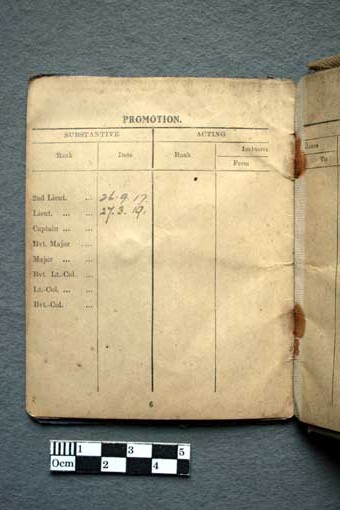 PROMOTION.
SUBSTANTIVE ACTING
Rank Date Rank Inclusive
From To
2nd Lieut. ... 26.9.17
Lieut. ... ... 27.3.19.
Captain ... ...
Bvt. Major ...
Major ... ...
Bvt. Lt.-Col. ...
Lt.-Col. ... ...
Bvt.-Col. ...
6
1 3 5
0cm 2 4